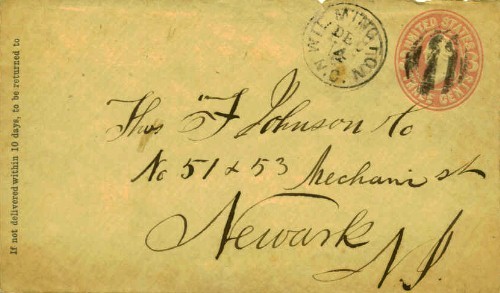 If not delivered within 10 days, to be returned to
WILMINGTON
UNITED STATES
Thos F Johnson & Co
No 51 & 53 Mechanic st
Newark
N.J.